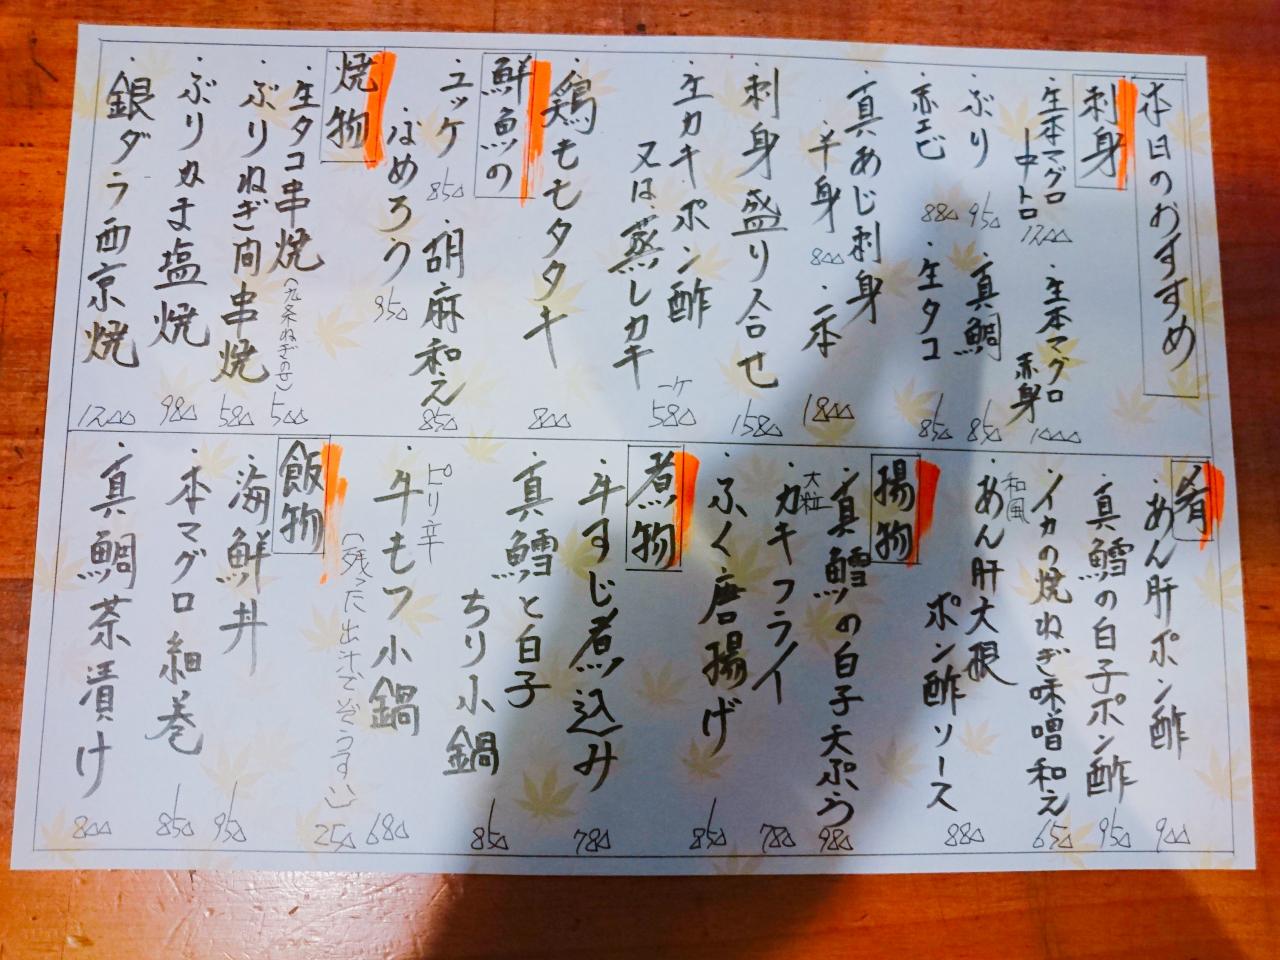 本日のおすすめ
刺身
・生本マグロ中トロ 12△△
・生本マグロ赤身 1△△△
・ぶり 95△
・真鯛 85△
・赤エビ 88△
・生タコ 85△
・真あじ刺身
・半身 8△△
・一本 18△△
・刺身盛り合せ 158△
・生カキポン酢
又は蒸しカキ 一ヶ 58△
・鶏ももタタキ 8△△
鮮魚の
・ユッケ 85△
・胡麻和え 85△
・なめろう 95△
焼物
・生タコ串焼(九条ねぎのせ) 5△△
・ぶりねぎ間串焼 58△
・ぶりかま塩焼 98△
・銀ダラ西京焼 12△△
肴
・あん肝ポン酢 9△△
・真鱈の白子ポン酢 95△
・イカの焼ねぎ味噌和え 65△
・和風あん肝大根
ポン酢ソース 88△
揚物
・真鱈の白子天ぷら 98△
・大粒カキフライ 78△
・ふぐ唐揚げ 85△
煮物
・牛すじ煮込み 78△
・真鱈と白子
ちり小鍋 85△
・ピリ辛牛もつ小鍋 68△
(残った出汁でぞうすい) 25△
飯物
・海鮮丼 95△
・本マグロ細巻 85△
・真鯛茶漬け 8△△